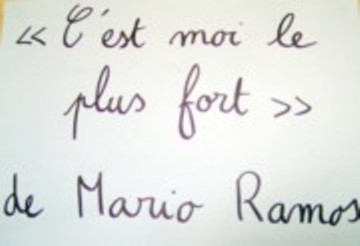 « C'est moi le
plus fort »
de Mario Ramos